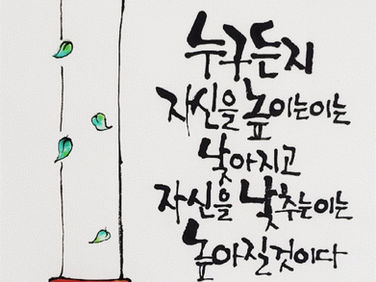 누구든지
자신을 높이는이는
낮아지고
자신을 낮추는이는
높아질것이다